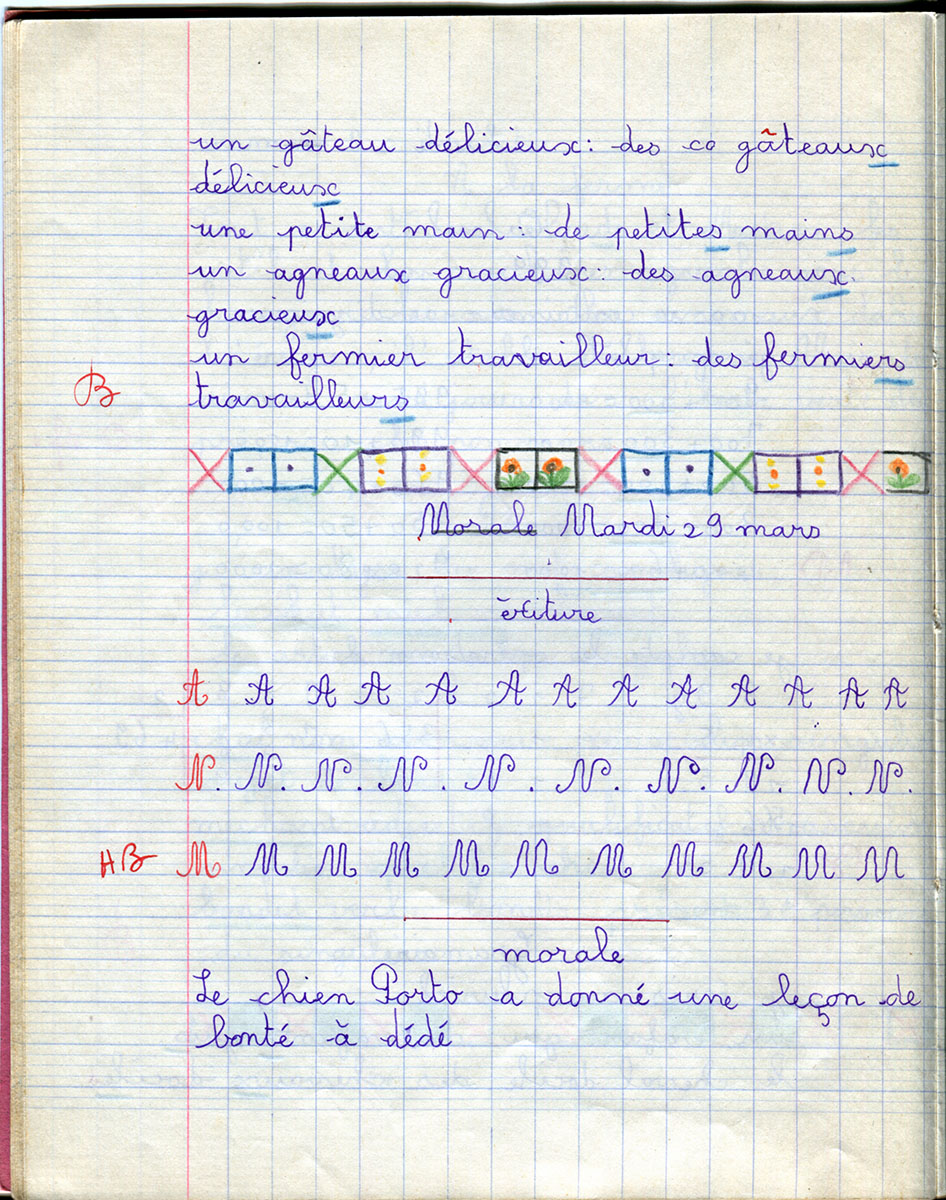 un gâteau délicieux: des co gâteaux
délicieux
une petite main: de petites mains
un agneaux gracieux: des agneaux
gracieux
un fermier travailleur: des fermiers
B travailleurs
Morale Mardi 29 mars
écriture
A A A A A A A A A A A A A
N. N. N. N. N. N. N. N. N. N.
HB M M M M M M M M M M M
morale
Le chien Porto a donné une leçon de
bonté à dédé